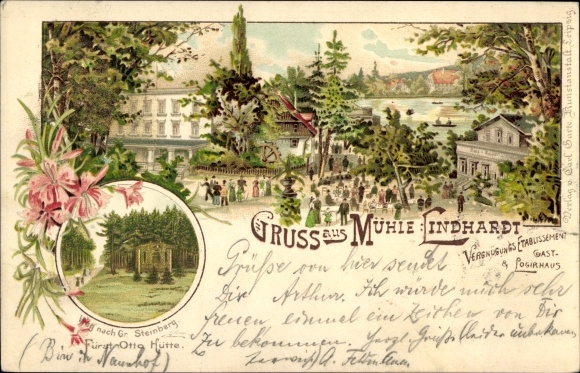 Verlag v. Carl Garte Kunstanstalt, Leipzig.
GRUSS aus MÜHLE LINDHARDT
VERGNÜGUNGS ETABLISSEMENT
GAST-
& LOGIRHAUS
Weg nach Gr. Steinberg.
Fürst Otto Hütte.
Grüße von hier sendet
Dir Arthur. Ich würde mich sehr
freuen einmal ein Zeichen von Dir
zu bekommen. Herzl. Grüße leider unbekannt
A.
(Bin in Naunhof)